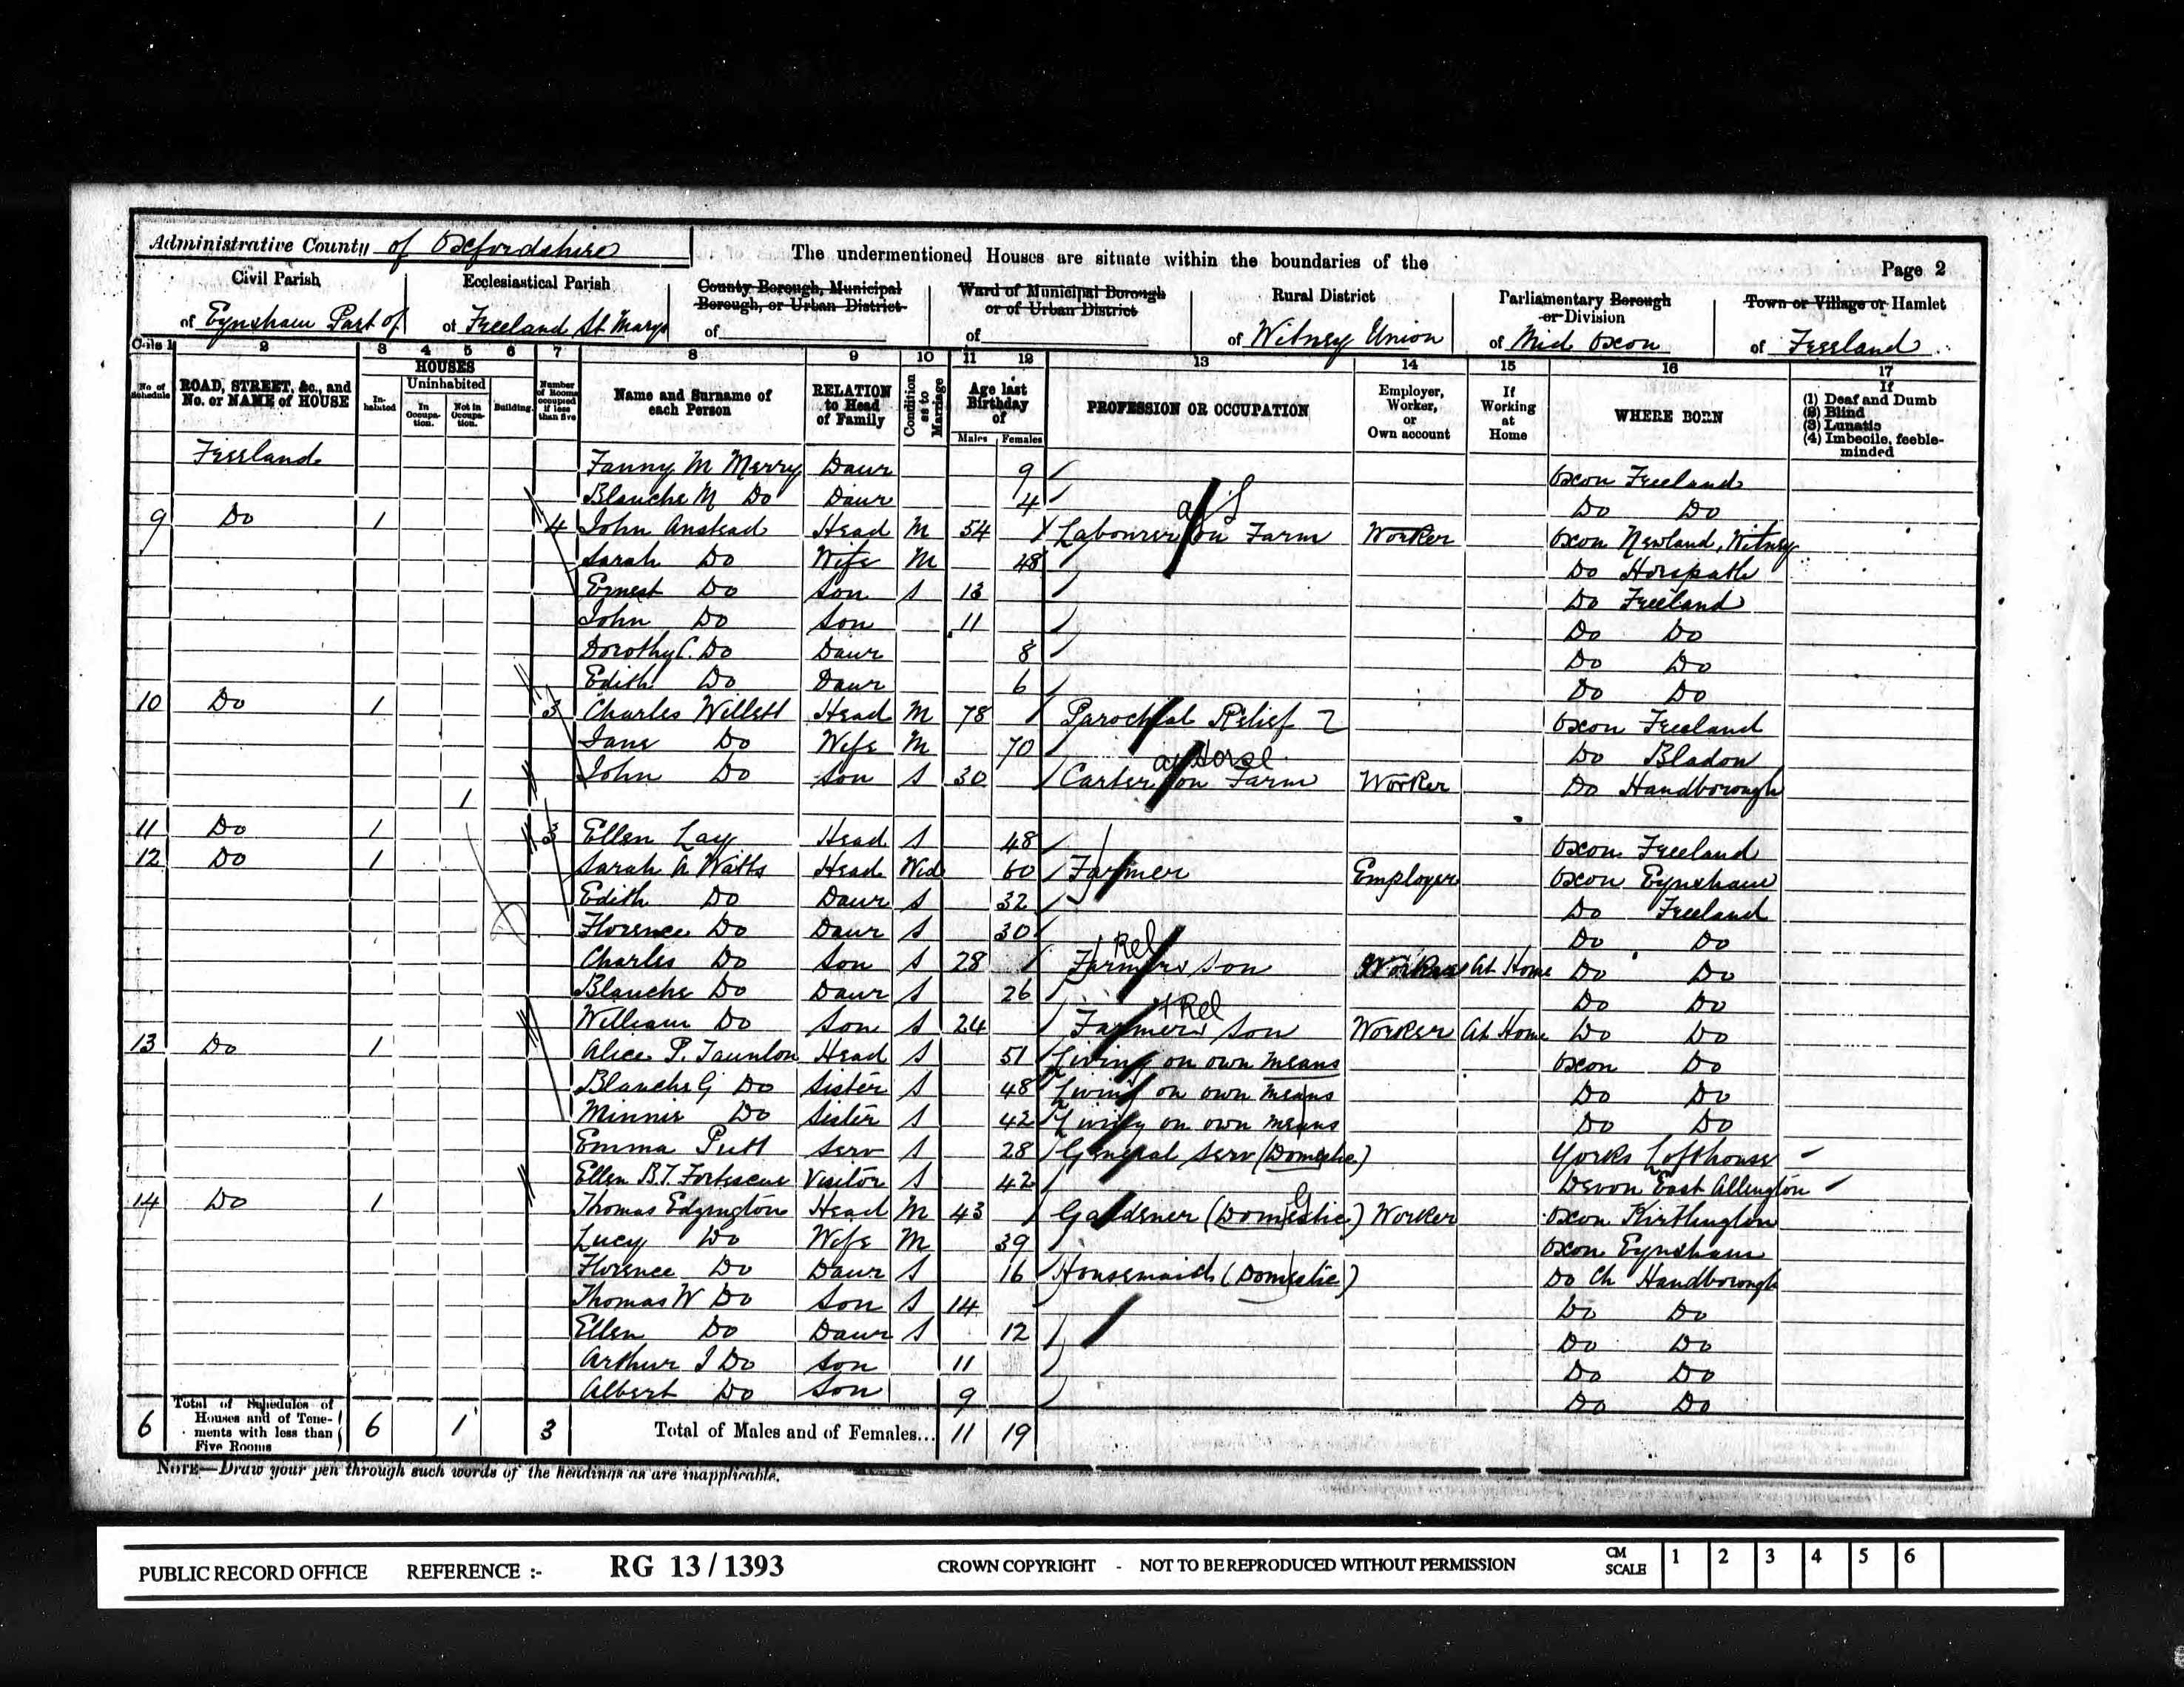 Administrative County of Oxfordshire
The undermentioned Houses are situate within the boundaries of the
Page 2
Civil Parish
of Eynsham Part of
Ecclesiastical Parish
of Freeland St Marys
County Borough, Municipal Borough, or Urban District
of
Ward of Municipal Borough or of Urban District
of
Rural District
of Witney Union
Parliamentary Borough or Division
of Mid Oxon
Town or Village or Hamlet
of Freeland
Cols 1 2 3 4 5 6 7 8 9 10 11 12 13 14 15 16 17
No. of Schedule
ROAD, STREET, &c., and No. or NAME of HOUSE
HOUSES
Inhabited
Uninhabited
In Occupation.
Not in Occupation.
Building.
Number of Rooms occupied if less than five
Name and Surname of each Person
RELATION to Head of Family
Condition as to Marriage
Age last Birthday of
Males Females
PROFESSION OR OCCUPATION
Employer, Worker, or Own account
If Working at Home
WHERE BORN
If (1) Deaf and Dumb (2) Blind (3) Lunatic (4) Imbecile, feeble-minded
Freeland Fanny M Merry Daur 9 Oxon Freeland
Blanche M Do Daur 4 Do Do
9 Do 1 4 John Anstead Head M 54 Labourer on Farm Worker Oxon Newland, Witney
Sarah Do Wife M 48 Do Horspath
Ernest Do Son S 13 Do Freeland
John Do Son 11 Do Do
Dorothy C. Do Daur 8 Do Do
Edith Do Daur 6 Do Do
10 Do 1 3 Charles Willett Head M 78 Parochial Relief Oxon Freeland
Jane Do Wife M 70 Do Bladon
John Do Son S 30 Carter on Farm Worker Do Handborough
1
11 Do 1 3 Ellen Lay Head S 48 Oxon Freeland
12 Do 1 Sarah A Watts Head Wid 60 Farmer Employer Oxon Eynsham
Edith Do Daur S 32 Do Freeland
Florence Do Daur S 30 Do Do
Rel
Charles Do Son S 28 Farmers Son Worker At Home Do Do
Blanche Do Daur S 26 Do Do
Rel
William Do Son S 24 Farmers Son Worker At Home Do Do
13 Do 1 Alice P. Taunton Head S 51 Living on own means Oxon Do
Blanche G Do Sister S 48 Living on own means Do Do
Minnie Do Sister S 42 Living on own means Do Do
Emma Putt Serv S 28 General Serv (Domestic) Yorks Lofthouse
Ellen B.T. Fortescue Visitor S 42 Devon East Allington
14 Do 1 Thomas Edgington Head M 43 Gardener (Domestic) Worker Oxon Kirtlington
Lucy Do Wife M 39 Oxon Eynsham
Florence Do Daur S 16 Housemaid (Domestic) Do Ch Handborough
Thomas W Do Son S 14 Do Do
Ellen Do Daur S 12 Do Do
Arthur J Do Son 11 Do Do
Albert Do Son 9 Do Do
6 Total of Schedules of Houses and of Tenements with less than Five Rooms 6 1 3 Total of Males and of Females... 11 19
NOTE—Draw your pen through such words of the headings as are inapplicable.
PUBLIC RECORD OFFICE REFERENCE :- RG 13 / 1393 CROWN COPYRIGHT - NOT TO BE REPRODUCED WITHOUT PERMISSION CM SCALE 1 2 3 4 5 6